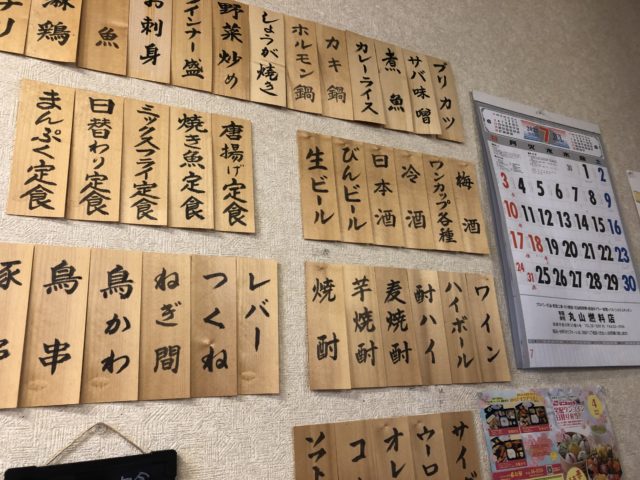 ブリカツ
サバ味噌
煮魚
カレーライス
カキ鍋
ホルモン鍋
しょうが焼き
野菜炒め
インナー盛
お刺身
魚
鶏
唐揚げ定食
焼き魚定食
ミックスフライ定食
日替わり定食
まんぷく定食
梅酒
ワンカップ各種
冷酒
日本酒
びんビール
生ビール
レバー
つくね
ねぎ間
鳥かわ
鳥串
豚串
ワイン
ハイボール
酎ハイ
麦焼酎
芋焼酎
焼酎
サイ
ウーロ
オレ
コ
ソフト
7
日 月 火 水 木 金 土
1 2
3 4 5 6 7 8 9
10 11 12 13 14 15 16
17 18 19 20 21 22 23
24 31 25 26 27 28 29 30
丸山燃料店
7